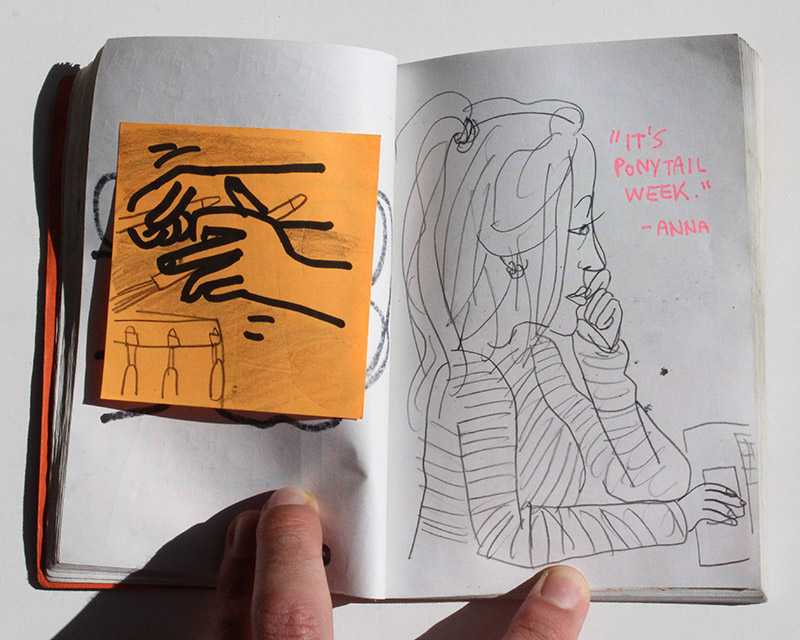 "IT'S
PONYTAIL
WEEK."
-ANNA